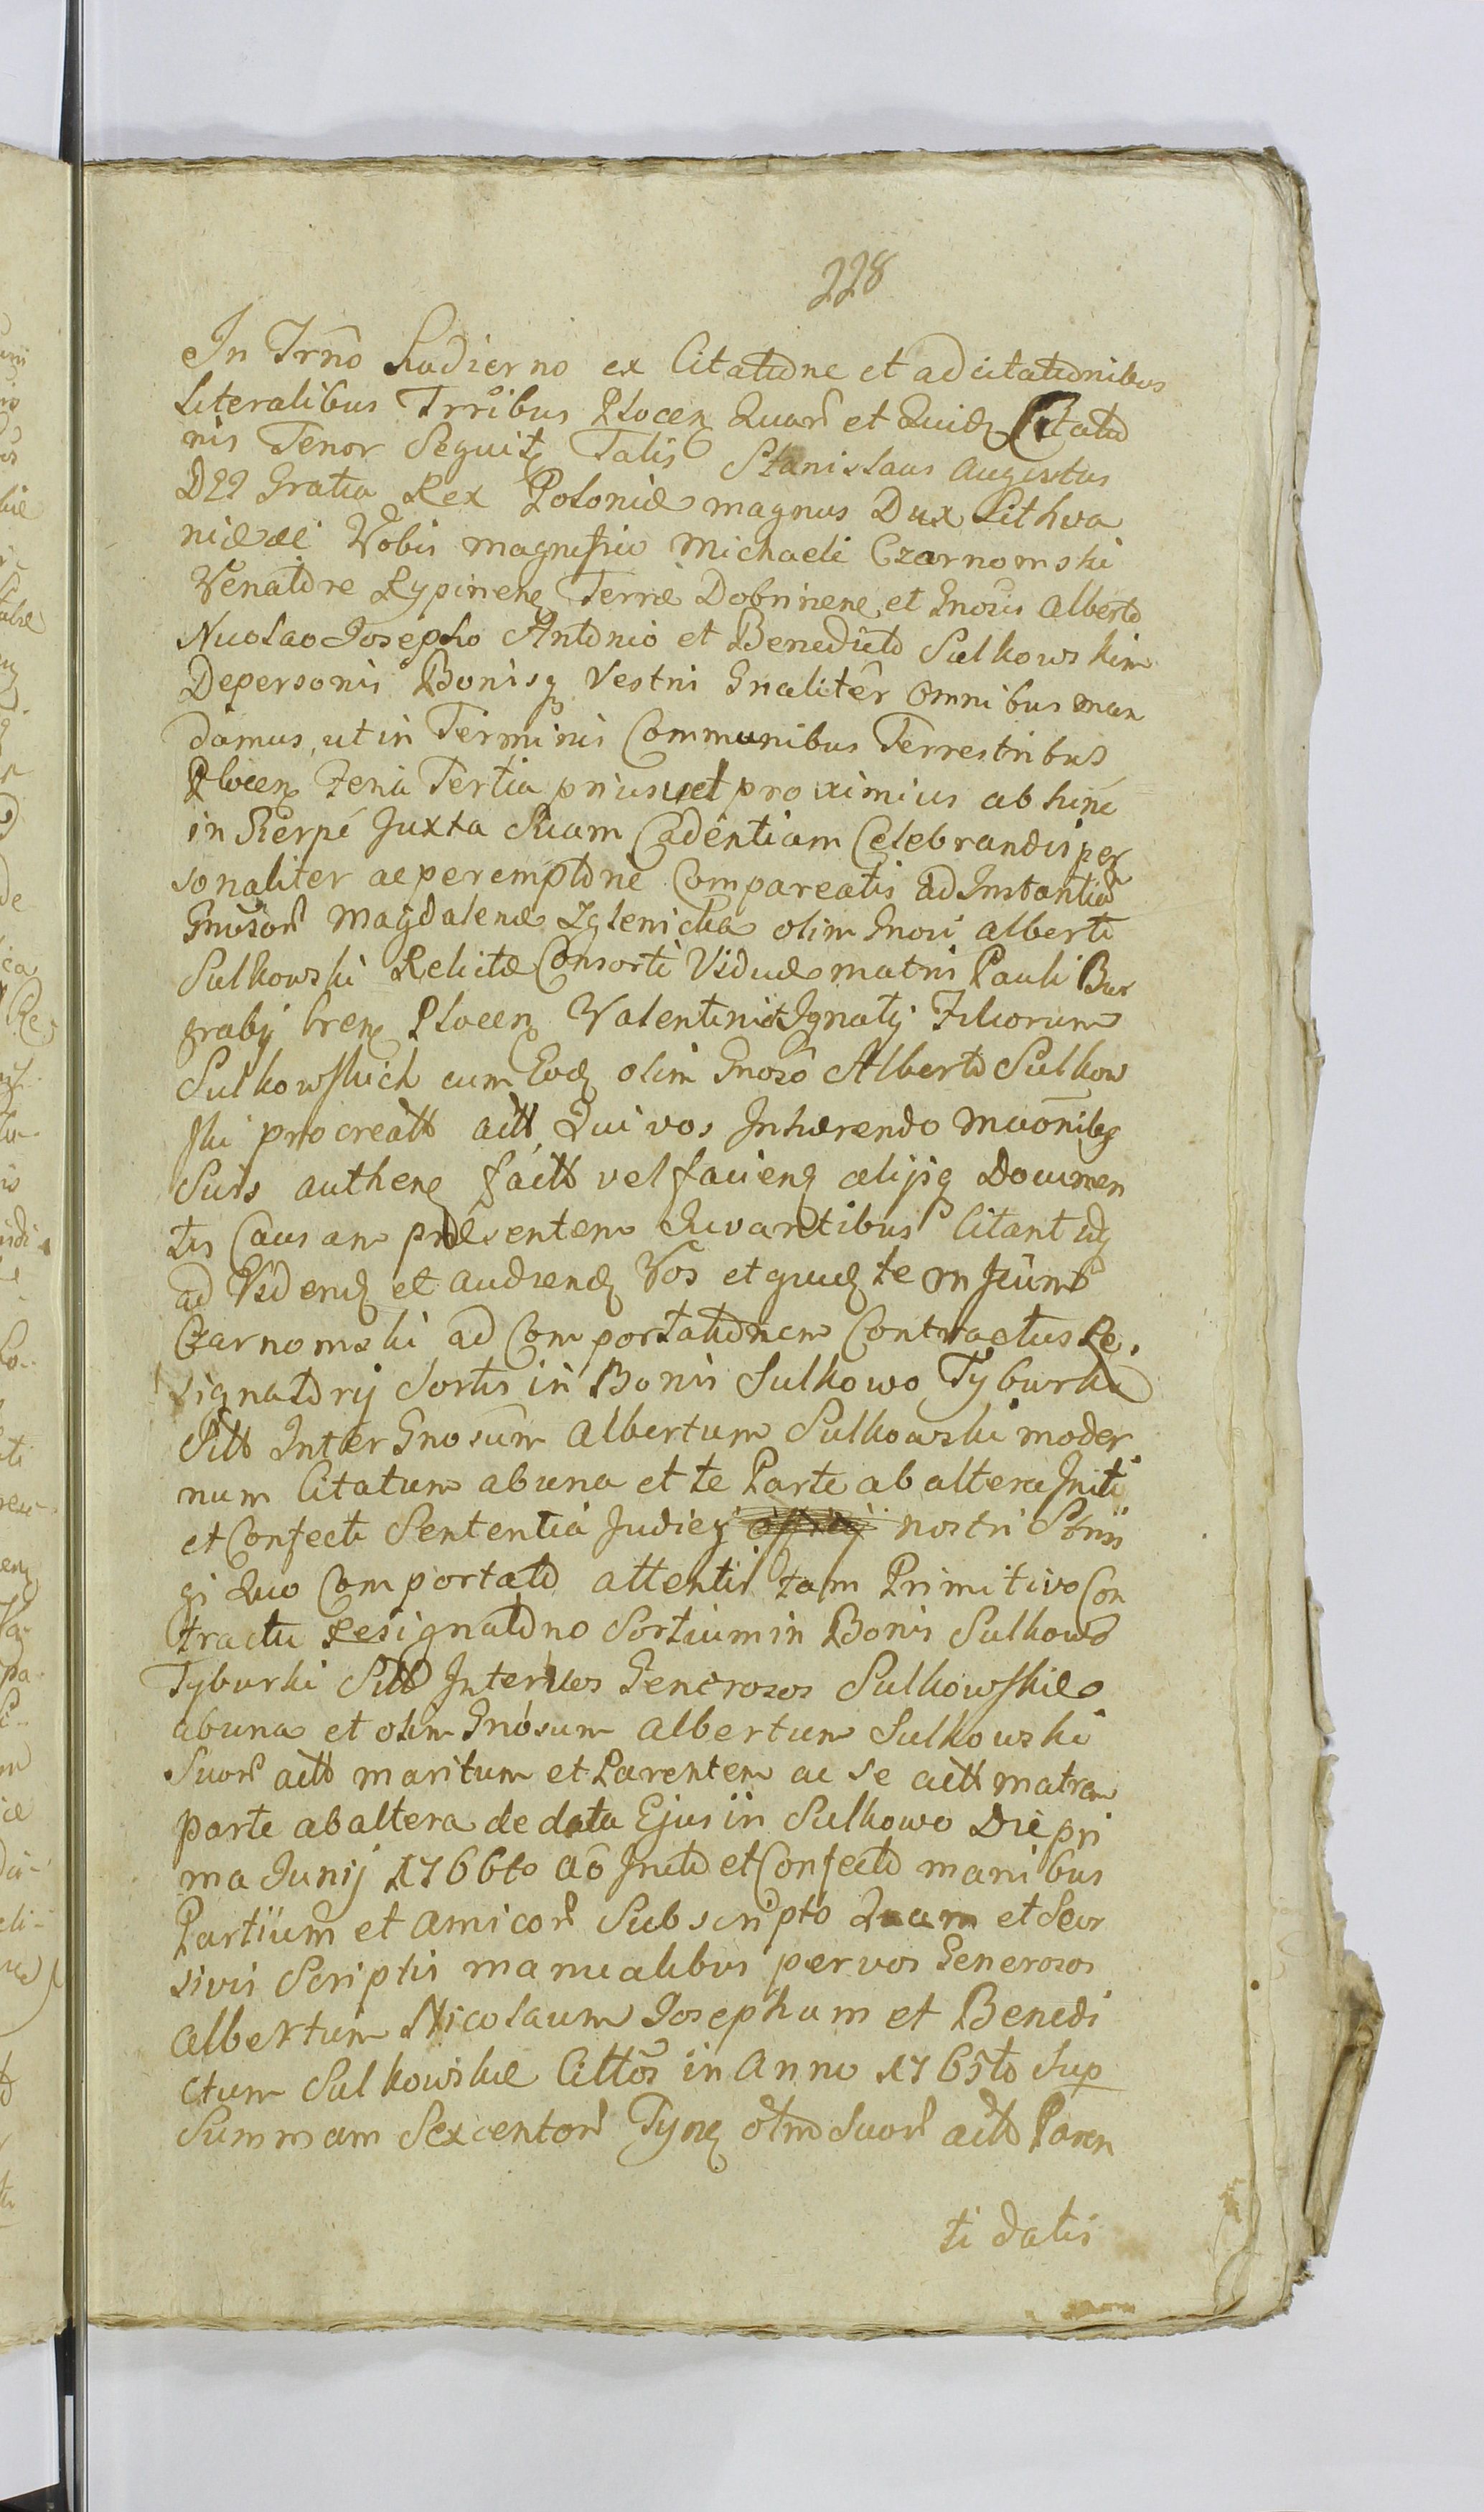 228
In Trno hodierno ex Citatõne et adcitatõnibus
Literalibus Trribus Plocen Quar et Quidq Citatõ
nis Tenor Seguitr Talis Stanislaus Augustus
DEI Gratia Rex Poloniæ magnus Dux Lithva
niæ &c Vobis magnifico Michaeli Czarnomski
Venatore Rypinen Terræ Dobrinen et Gnosis Alberto
Nicolao Josepho Antonio et Benedicto Sulkowskim
De personis Bonisq Vestris Gnaliter omnibus man
damus, ut in Terminis Communibus Terrestribus
Plocen Feria Tertia prius vel proximius ab hinc
in Sierpc Juxta Suam Cadentiam Celebrandis per
sonaliter ac peremptorie Compareatis ad Instantia
Gnosor Magdalenæ Zglenicka olim Gnosi Alberti
Sulkowski Relictæ Consorti Viduæ matris Pauli Bur
grabij Cren Plocen Valentini et Ignatij Filiorum
Sulkowskich cum Eod olim Gnoso Alberto Sulkow
ski procreatt actt, Qui vos Inhærendo
Suis authen factt vel facien alijsq Documen
tis Causam præsentem Iuvantibus Citant idq
ad Vidend et audiend Vos et quidq te
Czarnomski ad Comportatõnem Contractus Re,
signatorij Sortis in Bonis Sulkowo Tyburki
Sitt Inter Gnosum Albertum Sulkowski moder
num Citatum ab una et te Parte ab altera Initi
et Confecti Sententia Judicij nostri Strin
gi Quo Comportato attentis tam Primitivo Con
tractu Resignatõno Sortium in Bonis Sulkowo
Tyburki Sitt Inter Vos Generosos Sulkowskie
ab una et olim Gnosum Albertum Sulkowski
Suor actt maritum et Parentem ac se actt matrem
parte ab altera de data Ejus in Sulkowo Die pri
ma Junij 1766to aõ Inito et Confecto manibus
Partium et amicor Subscripto Quam et Recor
sivis Scriptis manualibus per vos Generosos
Albertum Nicolaum Josephum et Benedi
ctum Sulkowskie Cittos in Anno 1765to Sup
Summam Sexcentor Tynf olim Suor actt Paren
ti datis